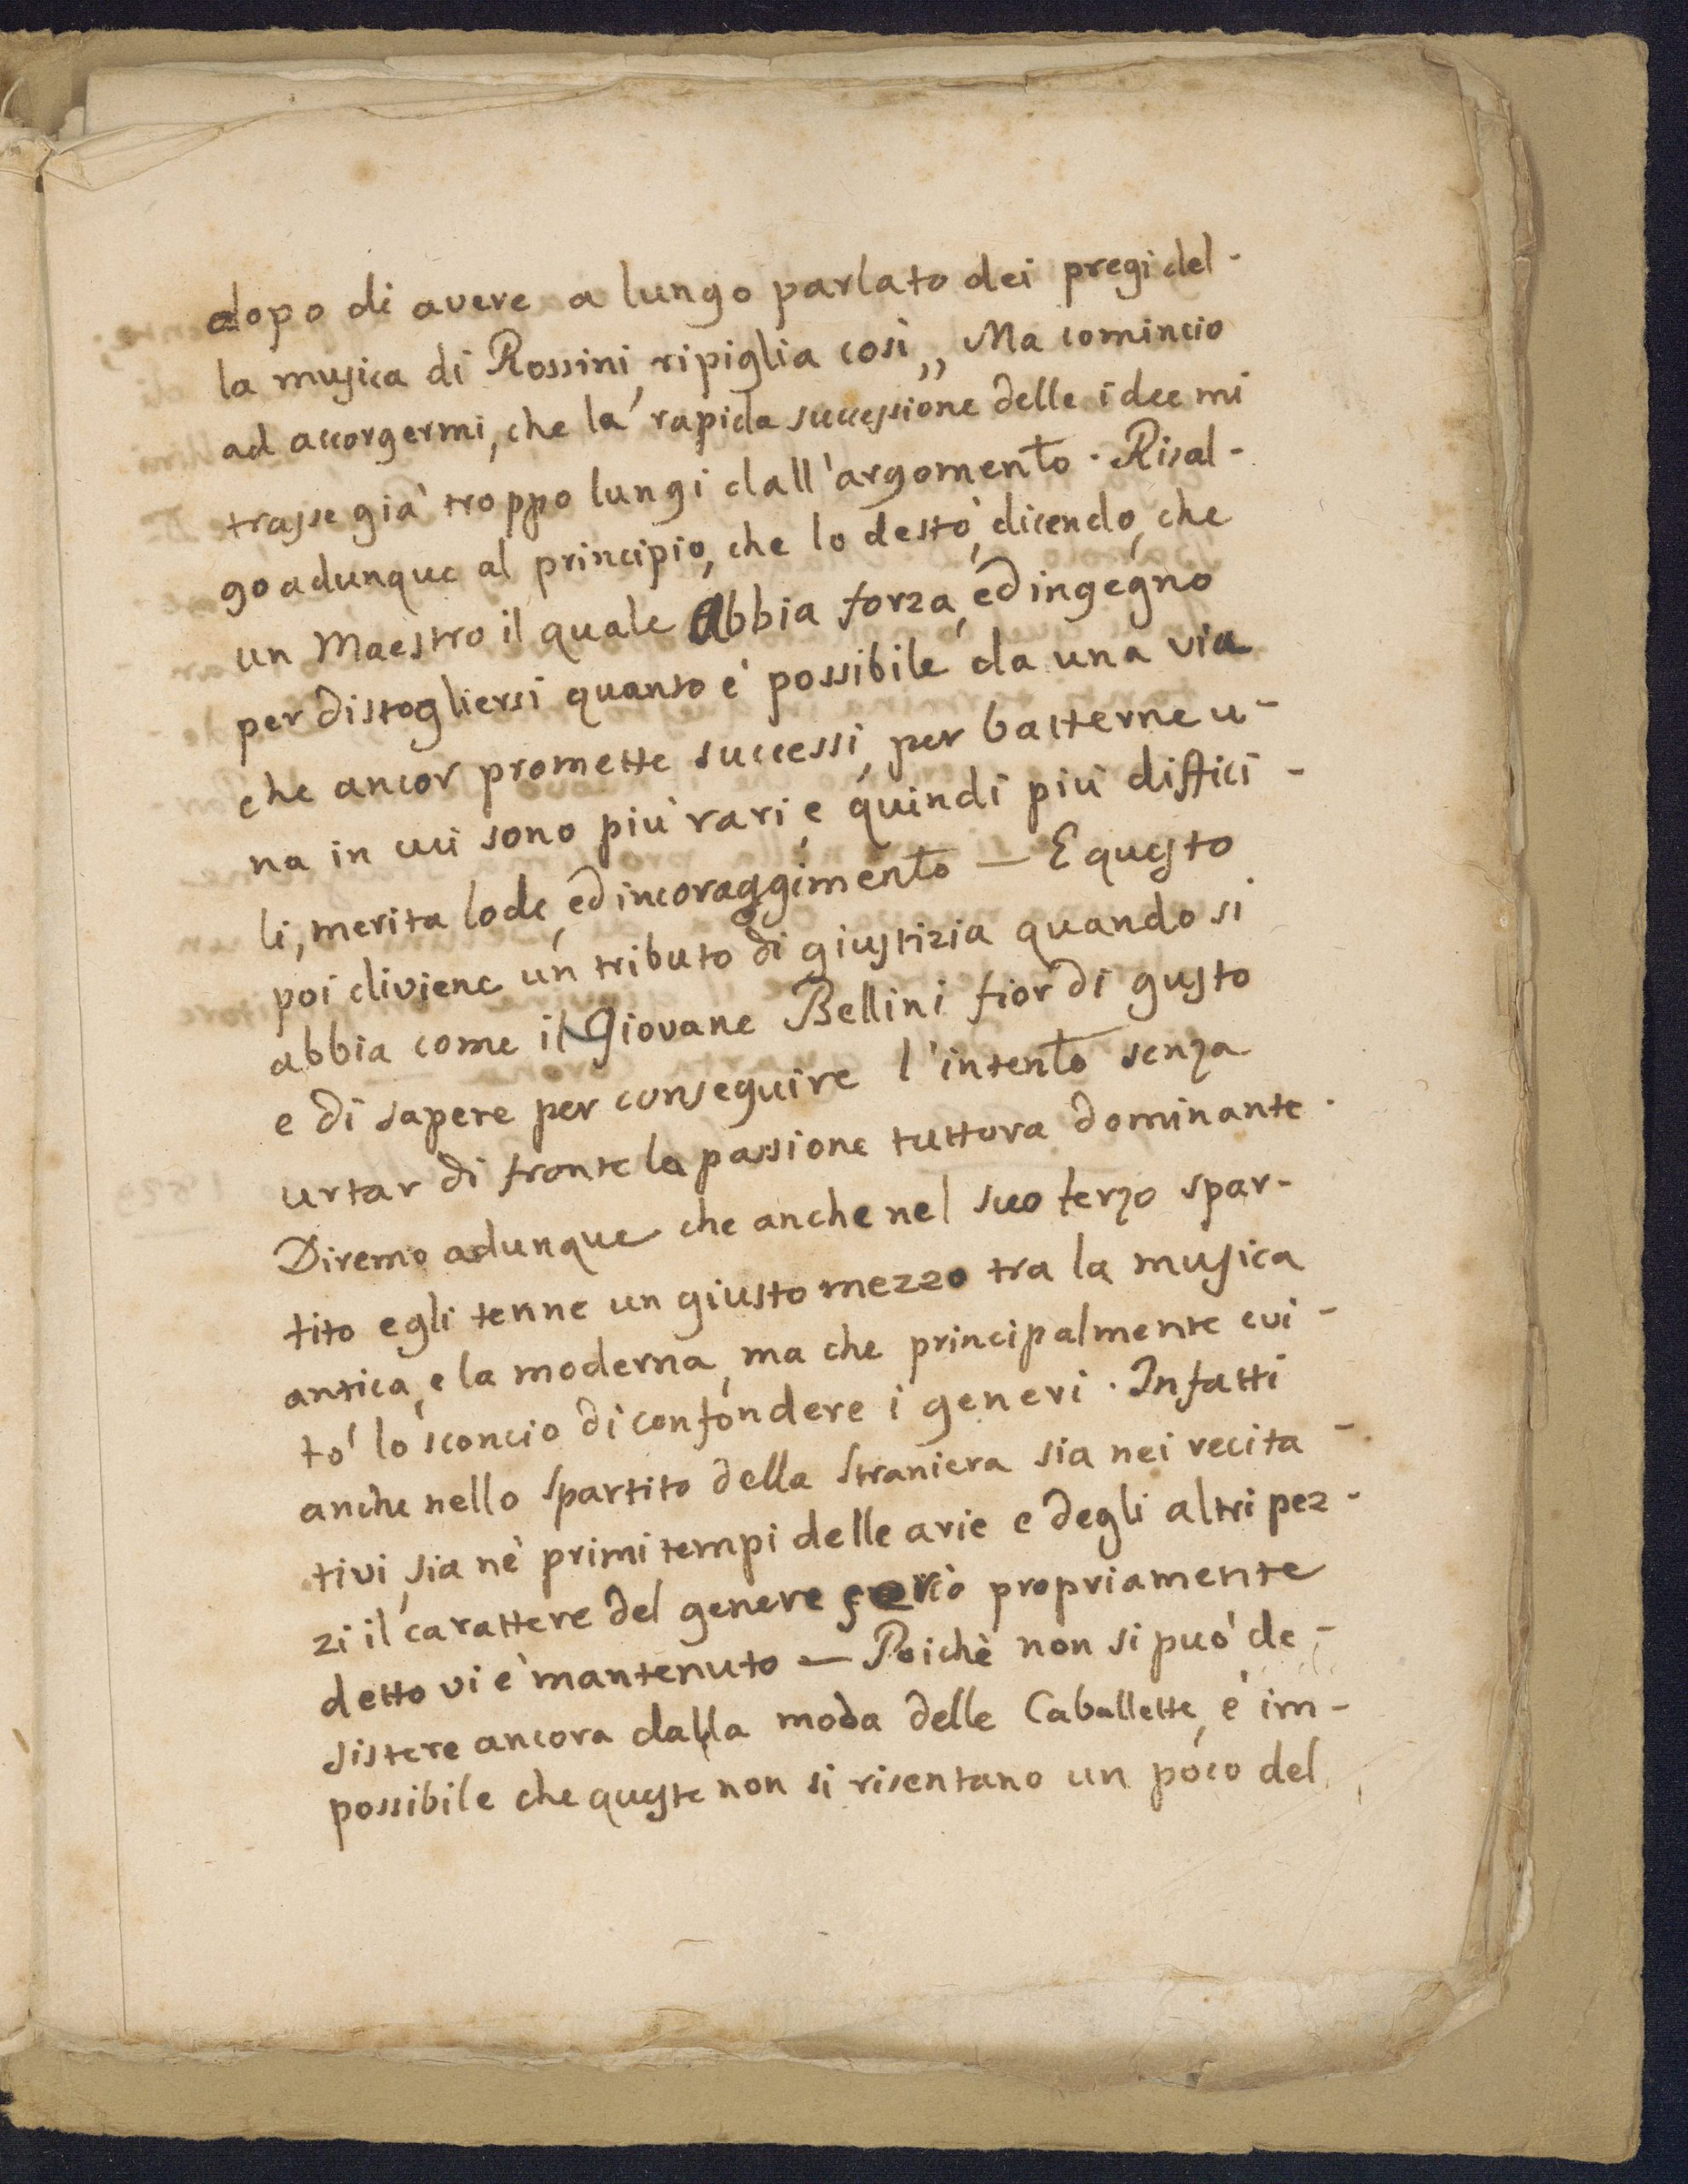 dopo di avere a lungo parlato dei pregi del-
la musica di Rossini, ripiglia così „ Ma comincio
ad accorgermi, che la rapida successione delle idee mi
trasse già troppo lungi dall'argomento. Risal-
go adunque al principio, che lo destò, dicendo, che
un Maestro il quale Abbia forza, ed ingegno
per distogliersi quanto è possibile da una via
che ancor promette successi, per batterne u-
na in cui sono più rari, e quindi più diffici-
li, merita lode, ed incoraggimento — E questo
poi diviene un tributo di giustizia quando si
abbia come il Giovane Bellini fior di gusto
e di sapere per conseguire l'intento senza
urtar di fronte la passione tuttora dominante.
Diremo adunque che anche nel suo terzo spar-
tito egli tenne un giusto mezzo tra la musica
antica, e la moderna, ma che principalmente evi-
tò lo sconcio di confondere i generi. Infatti
anche nello Spartito della Straniera sia nei recita-
tivi, sia nè primi tempi delle arie e degli altri pez-
zi il carattere del genere serio propriamente
detto vi è mantenuto — Poichè non si può de-
sistere ancora dalla moda delle Caballette, è im-
possibile che queste non si risentano un poco del